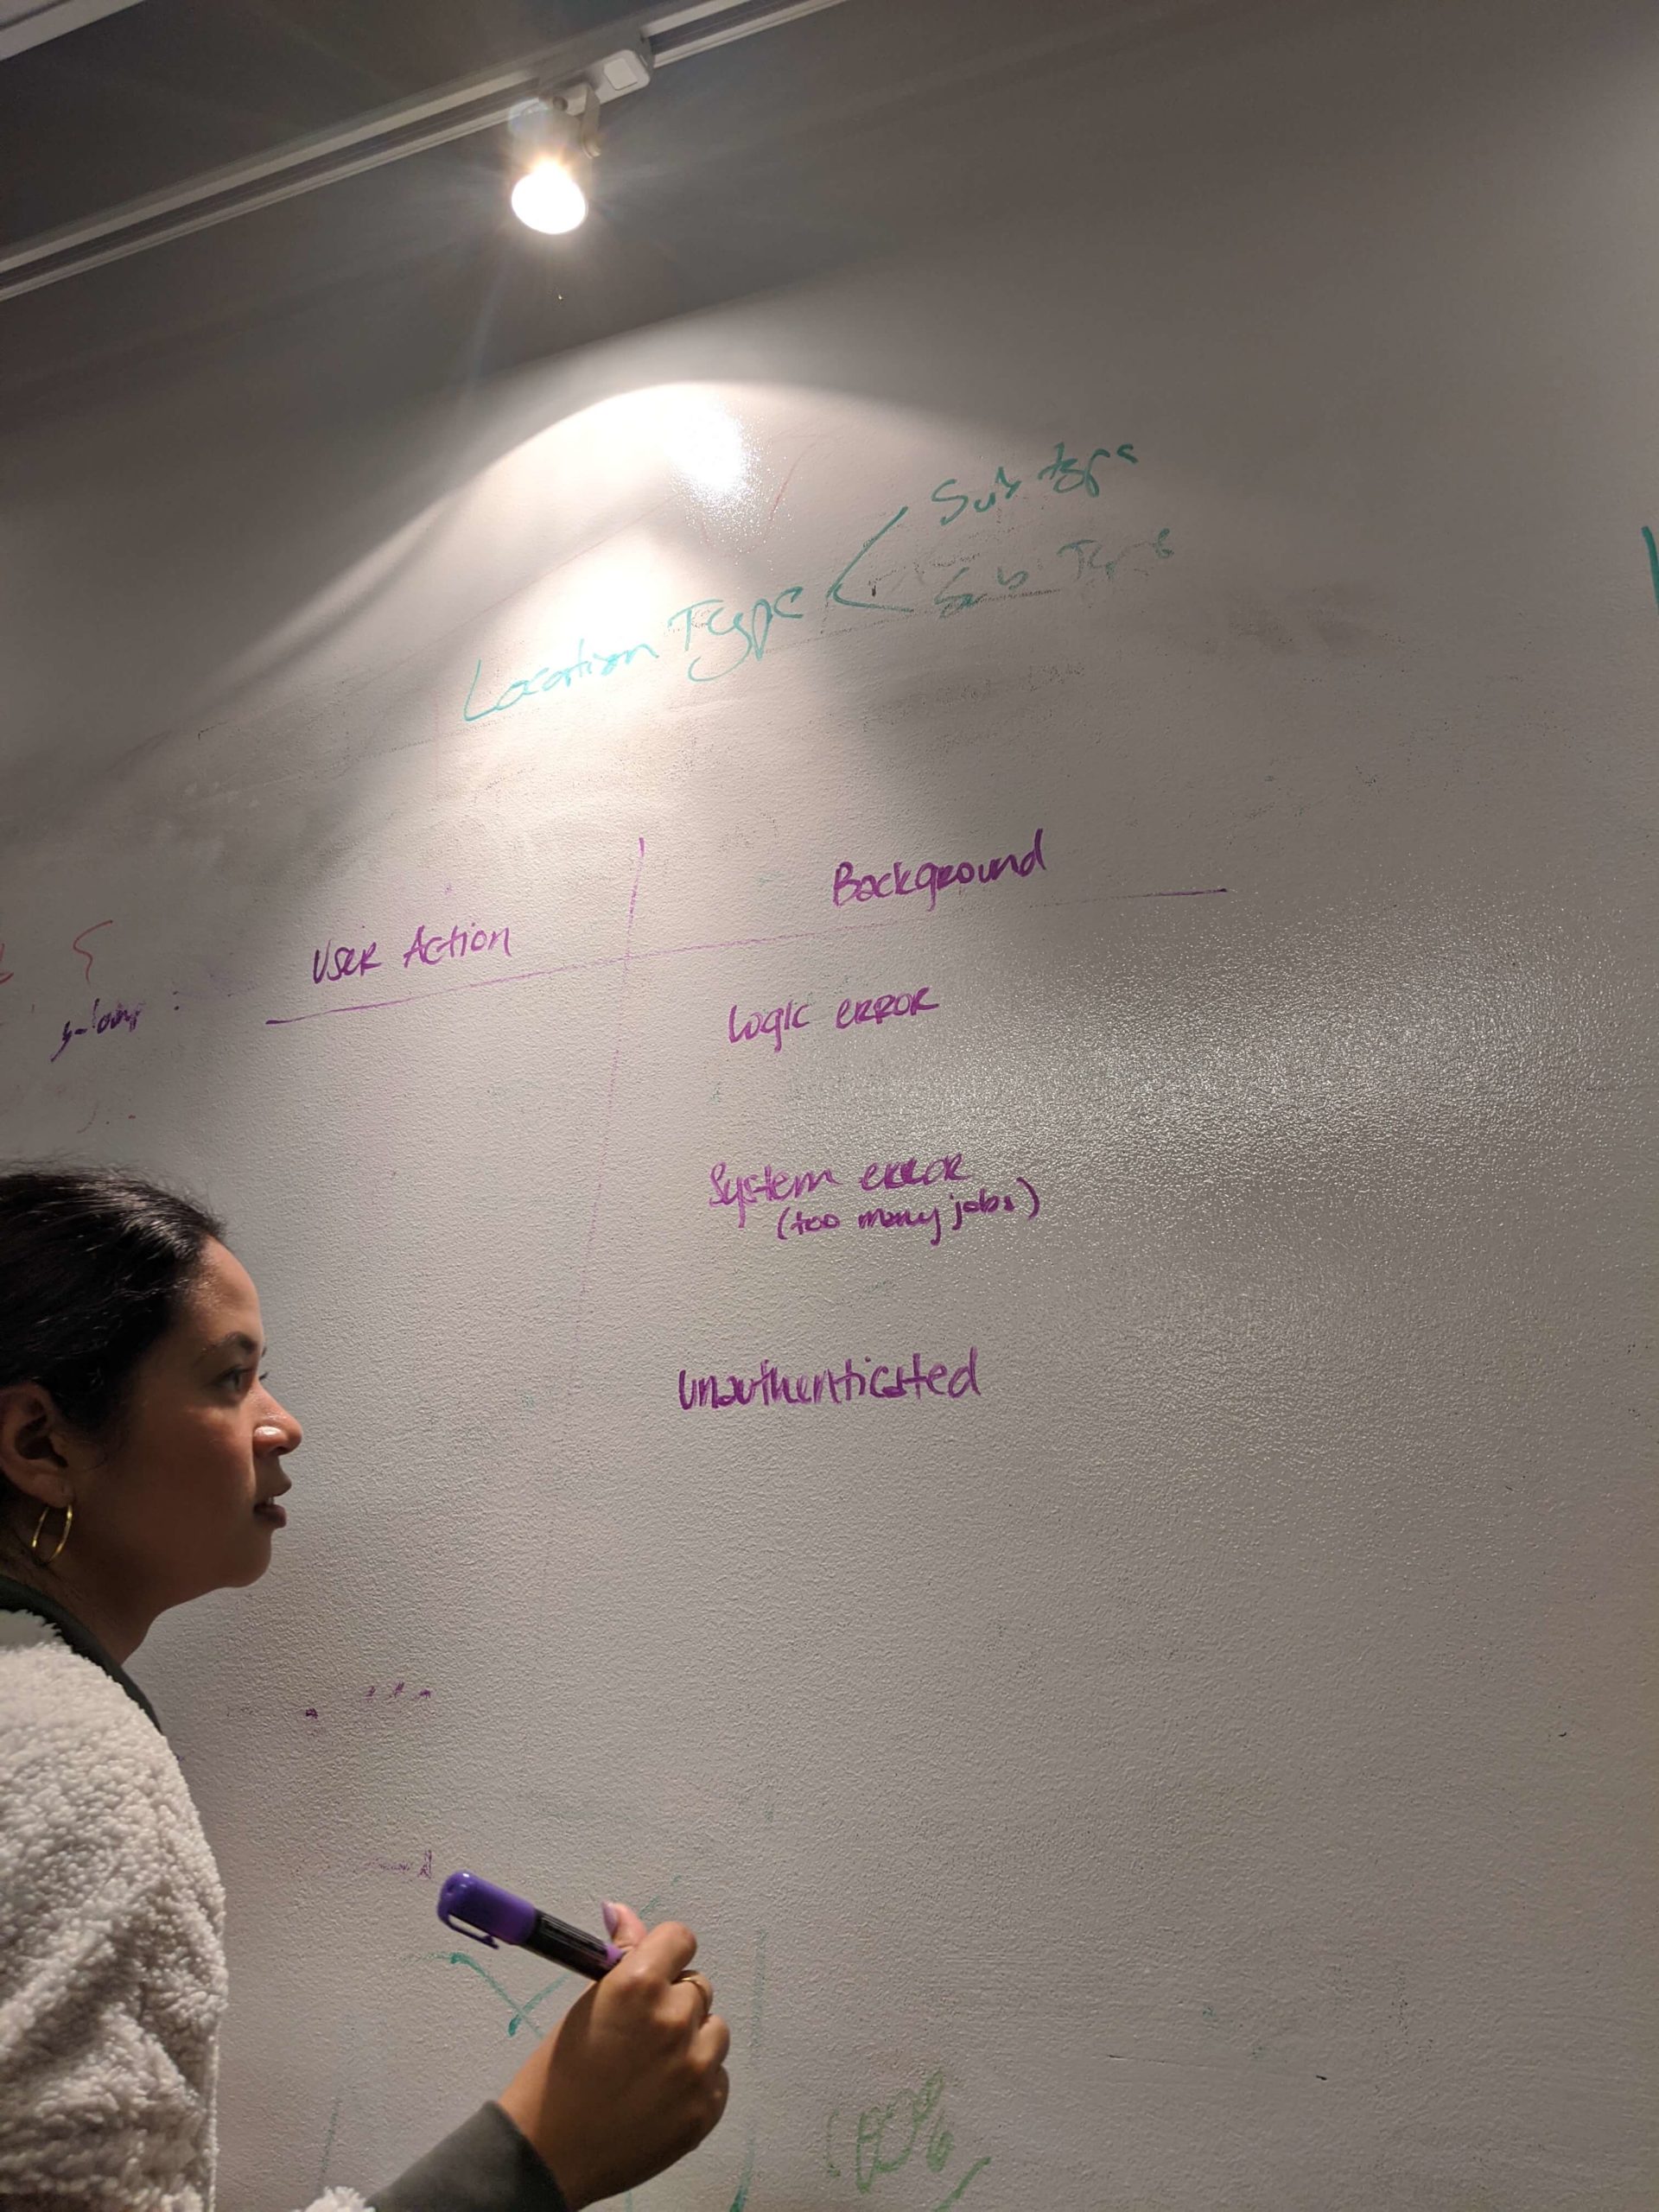 Sub type
Location Type
Sub Type
Background
User Action
Logic error
System error
(too many jobs)
Unauthenticated